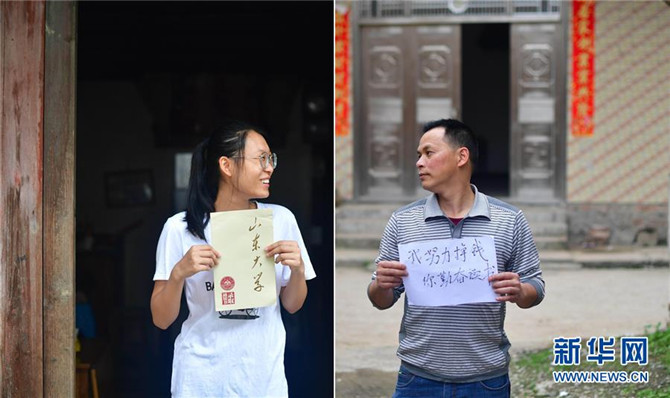 山东大学
BA
我努力挣钱
你勤奋读书
新华网
WWW.NEWS.CN